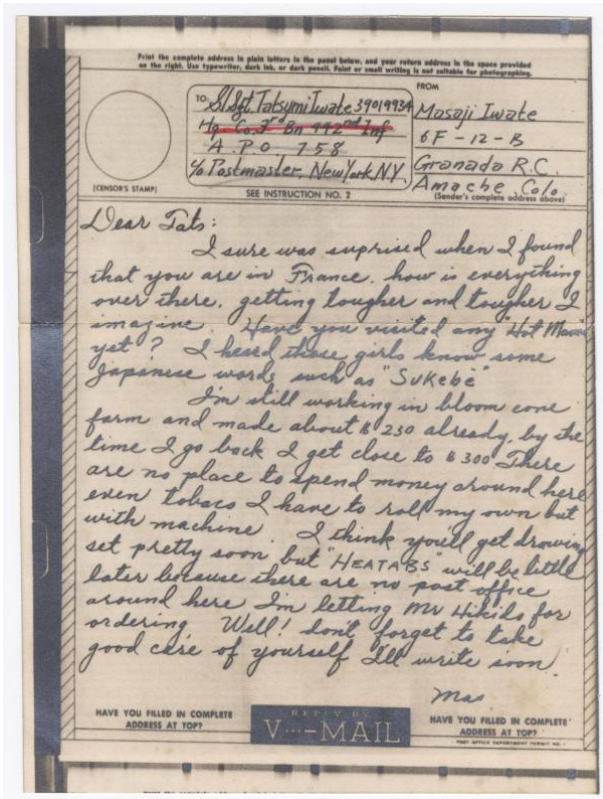 Print the complete address in plain letters in the panel below, and your return address in the space provided
on the right. Use typewriter, dark ink, or dark pencil. Faint or small writing is not suitable for photographing.
(CENSOR'S STAMP)
TO:
S/Sgt. Tatsumi Iwate 39019934
Hq. Co. 3rd Bn 442nd Inf
A.P.O. 758
c/o Postmaster, New York N.Y.
SEE INSTRUCTION NO. 2
FROM
Masaji Iwate
6F-12-B
Granada R.C.
Amache, Colo.
(Sender's complete address above)
Dear Tats:
I sure was suprised when I found
that you are in France. how is everything
over there. getting tougher and tougher I
imagine. Have you visited any "Hot Mama"
yet? I heard those girls know some
Japanese words such as "Sukebe"
I'm still working in bloom cone
farm and made about $230 already, by the
time I go back I get close to $300 There
are no place to spend money around here
even tobaco I have to roll my own but
with machine. I think you'll get drowing
set pretty soon but "HEATABS" will be little
later because there are no post office
around here I'm letting Mr Hikida for
ordering. Well! don't forget to take
good care of yourself I'll write soon.
Mas
HAVE YOU FILLED IN COMPLETE
ADDRESS AT TOP?
REPLY BY
V···—MAIL
HAVE YOU FILLED IN COMPLETE
ADDRESS AT TOP?
POST OFFICE DEPARTMENT PERMIT NO. 1